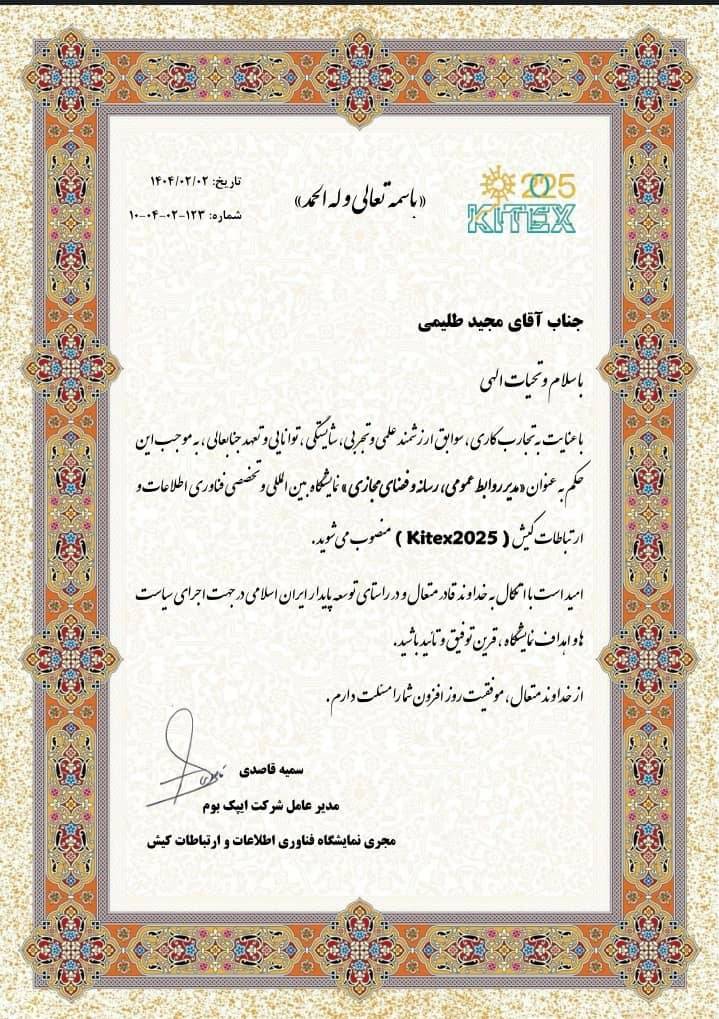 2025
KITEX
«باسمه تعالی و له الحمد»
تاریخ: ۱۴۰۴/۰۲/۰۲
شماره: ۱۲۳-۰۲-۰۴-۱۰
جناب آقای مجید طلیمی
با سلام و تحیات الهی
با عنایت به تجارب کاری، سوابق ارزشمند علمی و تجربی، شایستگی، توانایی و تعهد جنابعالی، به موجب این
حکم به عنوان «مدیر روابط عمومی، رسانه و فضای مجازی» نمایشگاه بین المللی و تخصصی فناوری اطلاعات و
ارتباطات کیش ( Kitex2025 ) منصوب می شوید.
امید است با اتکال به خداوند قادر متعال و در راستای توسعه پایدار ایران اسلامی در جهت اجرای سیاست
ها و اهداف نمایشگاه، قرین توفیق و تائید باشید.
از خداوند متعال، موفقیت روز افزون شما را مسئلت دارم.
سمیه قاصدی
مدیر عامل شرکت ایپک بوم
مجری نمایشگاه فناوری اطلاعات و ارتباطات کیش